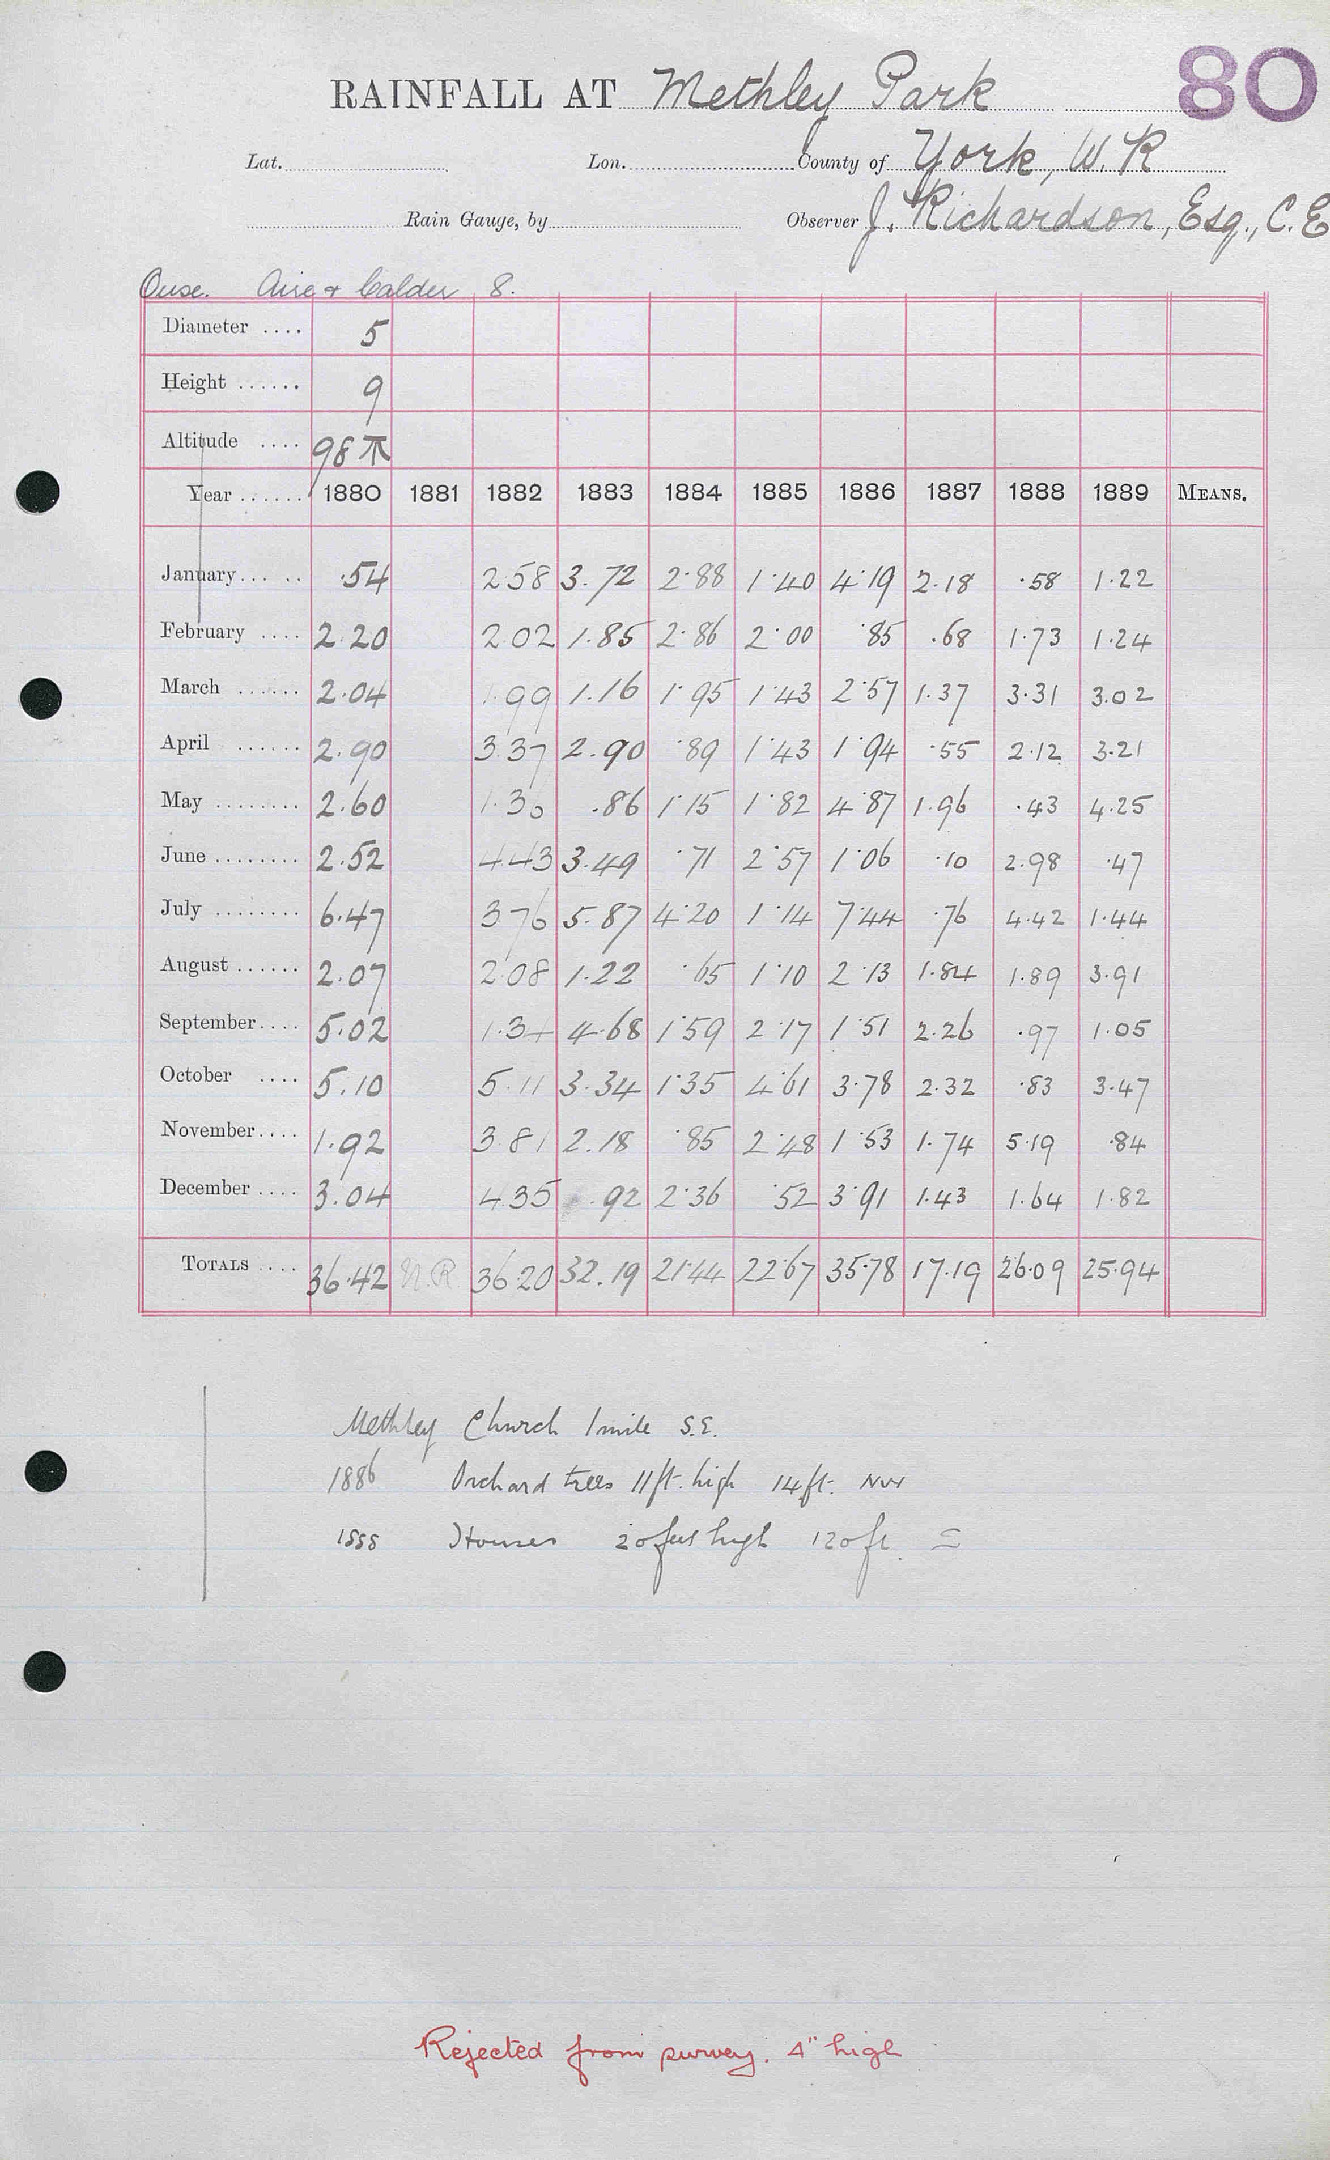 RAINFALL AT Methley Park 80
Lat. Lon. County of York, W.R
Rain Gauge, by Observer J. Richardson, Esq., C.E
Ouse. Aire & Calder 8.
Diameter .... 5
Height ...... 9
Altitude .... 98
Year ...... 1880 1881 1882 1883 1884 1885 1886 1887 1888 1889 MEANS.
January... .. .54 2.58 3.72 2.88 1.40 4.19 2.18 .58 1.22
February .... 2.20 2.02 1.85 2.86 2.00 .85 .68 1.73 1.24
March ...... 2.04 1.99 1.16 1.95 1.43 2.57 1.37 3.31 3.02
April ...... 2.90 3.37 2.90 .89 1.43 1.94 .55 2.12 3.21
May ........ 2.60 1.30 .86 1.15 1.82 4.87 1.96 .43 4.25
June ........ 2.52 4.43 3.49 .71 2.57 1.06 .10 2.98 .47
July ........ 6.47 3.76 5.87 4.20 1.14 7.44 .76 4.42 1.44
August ...... 2.07 2.08 1.22 .65 1.10 2.13 1.84 1.89 3.91
September.... 5.02 1.34 4.68 1.59 2.17 1.51 2.26 .97 1.05
October .... 5.10 5.11 3.34 1.35 4.61 3.78 2.32 .83 3.47
November.... 1.92 3.81 2.18 .85 2.48 1.53 1.74 5.19 .84
December .... 3.04 4.35 .92 2.36 .52 3.91 1.43 1.64 1.82
TOTALS .... 36.42 N.R. 36.20 32.19 21.44 22.67 35.78 17.19 26.09 25.94
Methley Church 1 mile S.E.
1886 Orchard trees 11 ft. high 14 ft. NW
1888 Houses 20 feet high 120 ft.
Rejected from survey. 4" high